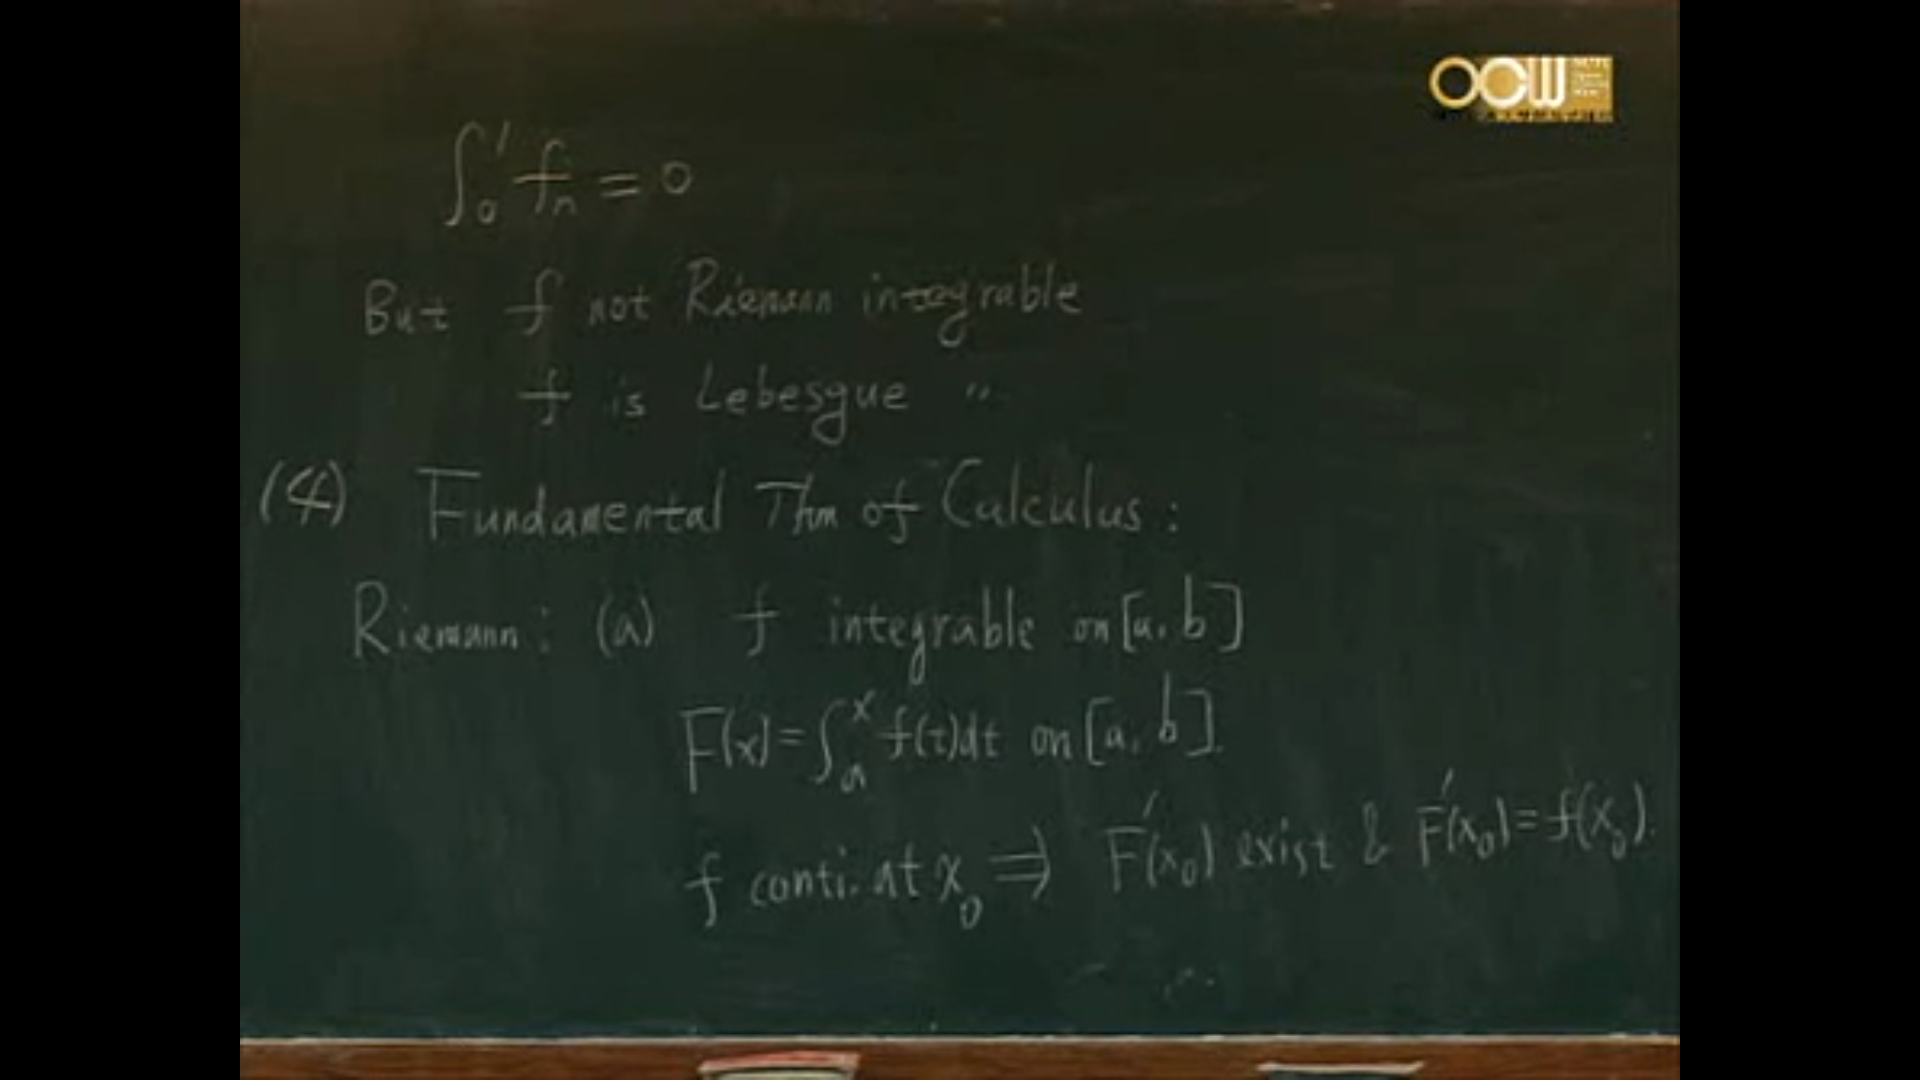 OCW
∫₀¹ fₙ = 0
But f not Riemann integrable
f is Lebesgue "
(4) Fundamental Thm of Calculus :
Riemann : (a) f integrable on [a, b]
F(x) = ∫ₐˣ f(t)dt on [a, b].
f conti. at x₀ ⇒ F'(x₀) exist & F'(x₀) = f(x₀).